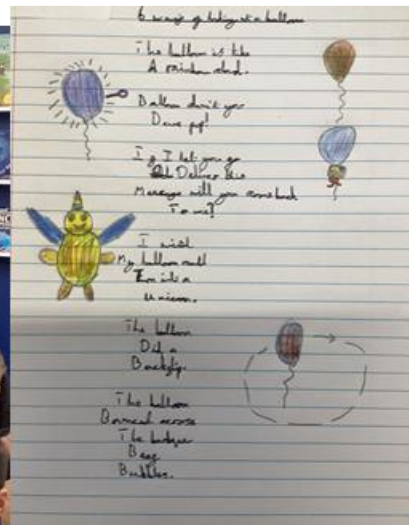 6 ways of looking at a balloon
The balloon is like
A rainbow cloud.
Balloon don't you
Dare pop!
If I let you go
Deliver this
Message will you come back
To me?
I wish
My balloon could
Turn into a
Unicorn.
The balloon
Did a
Backflip.
The balloon
Bounced across
The
Bubbles.